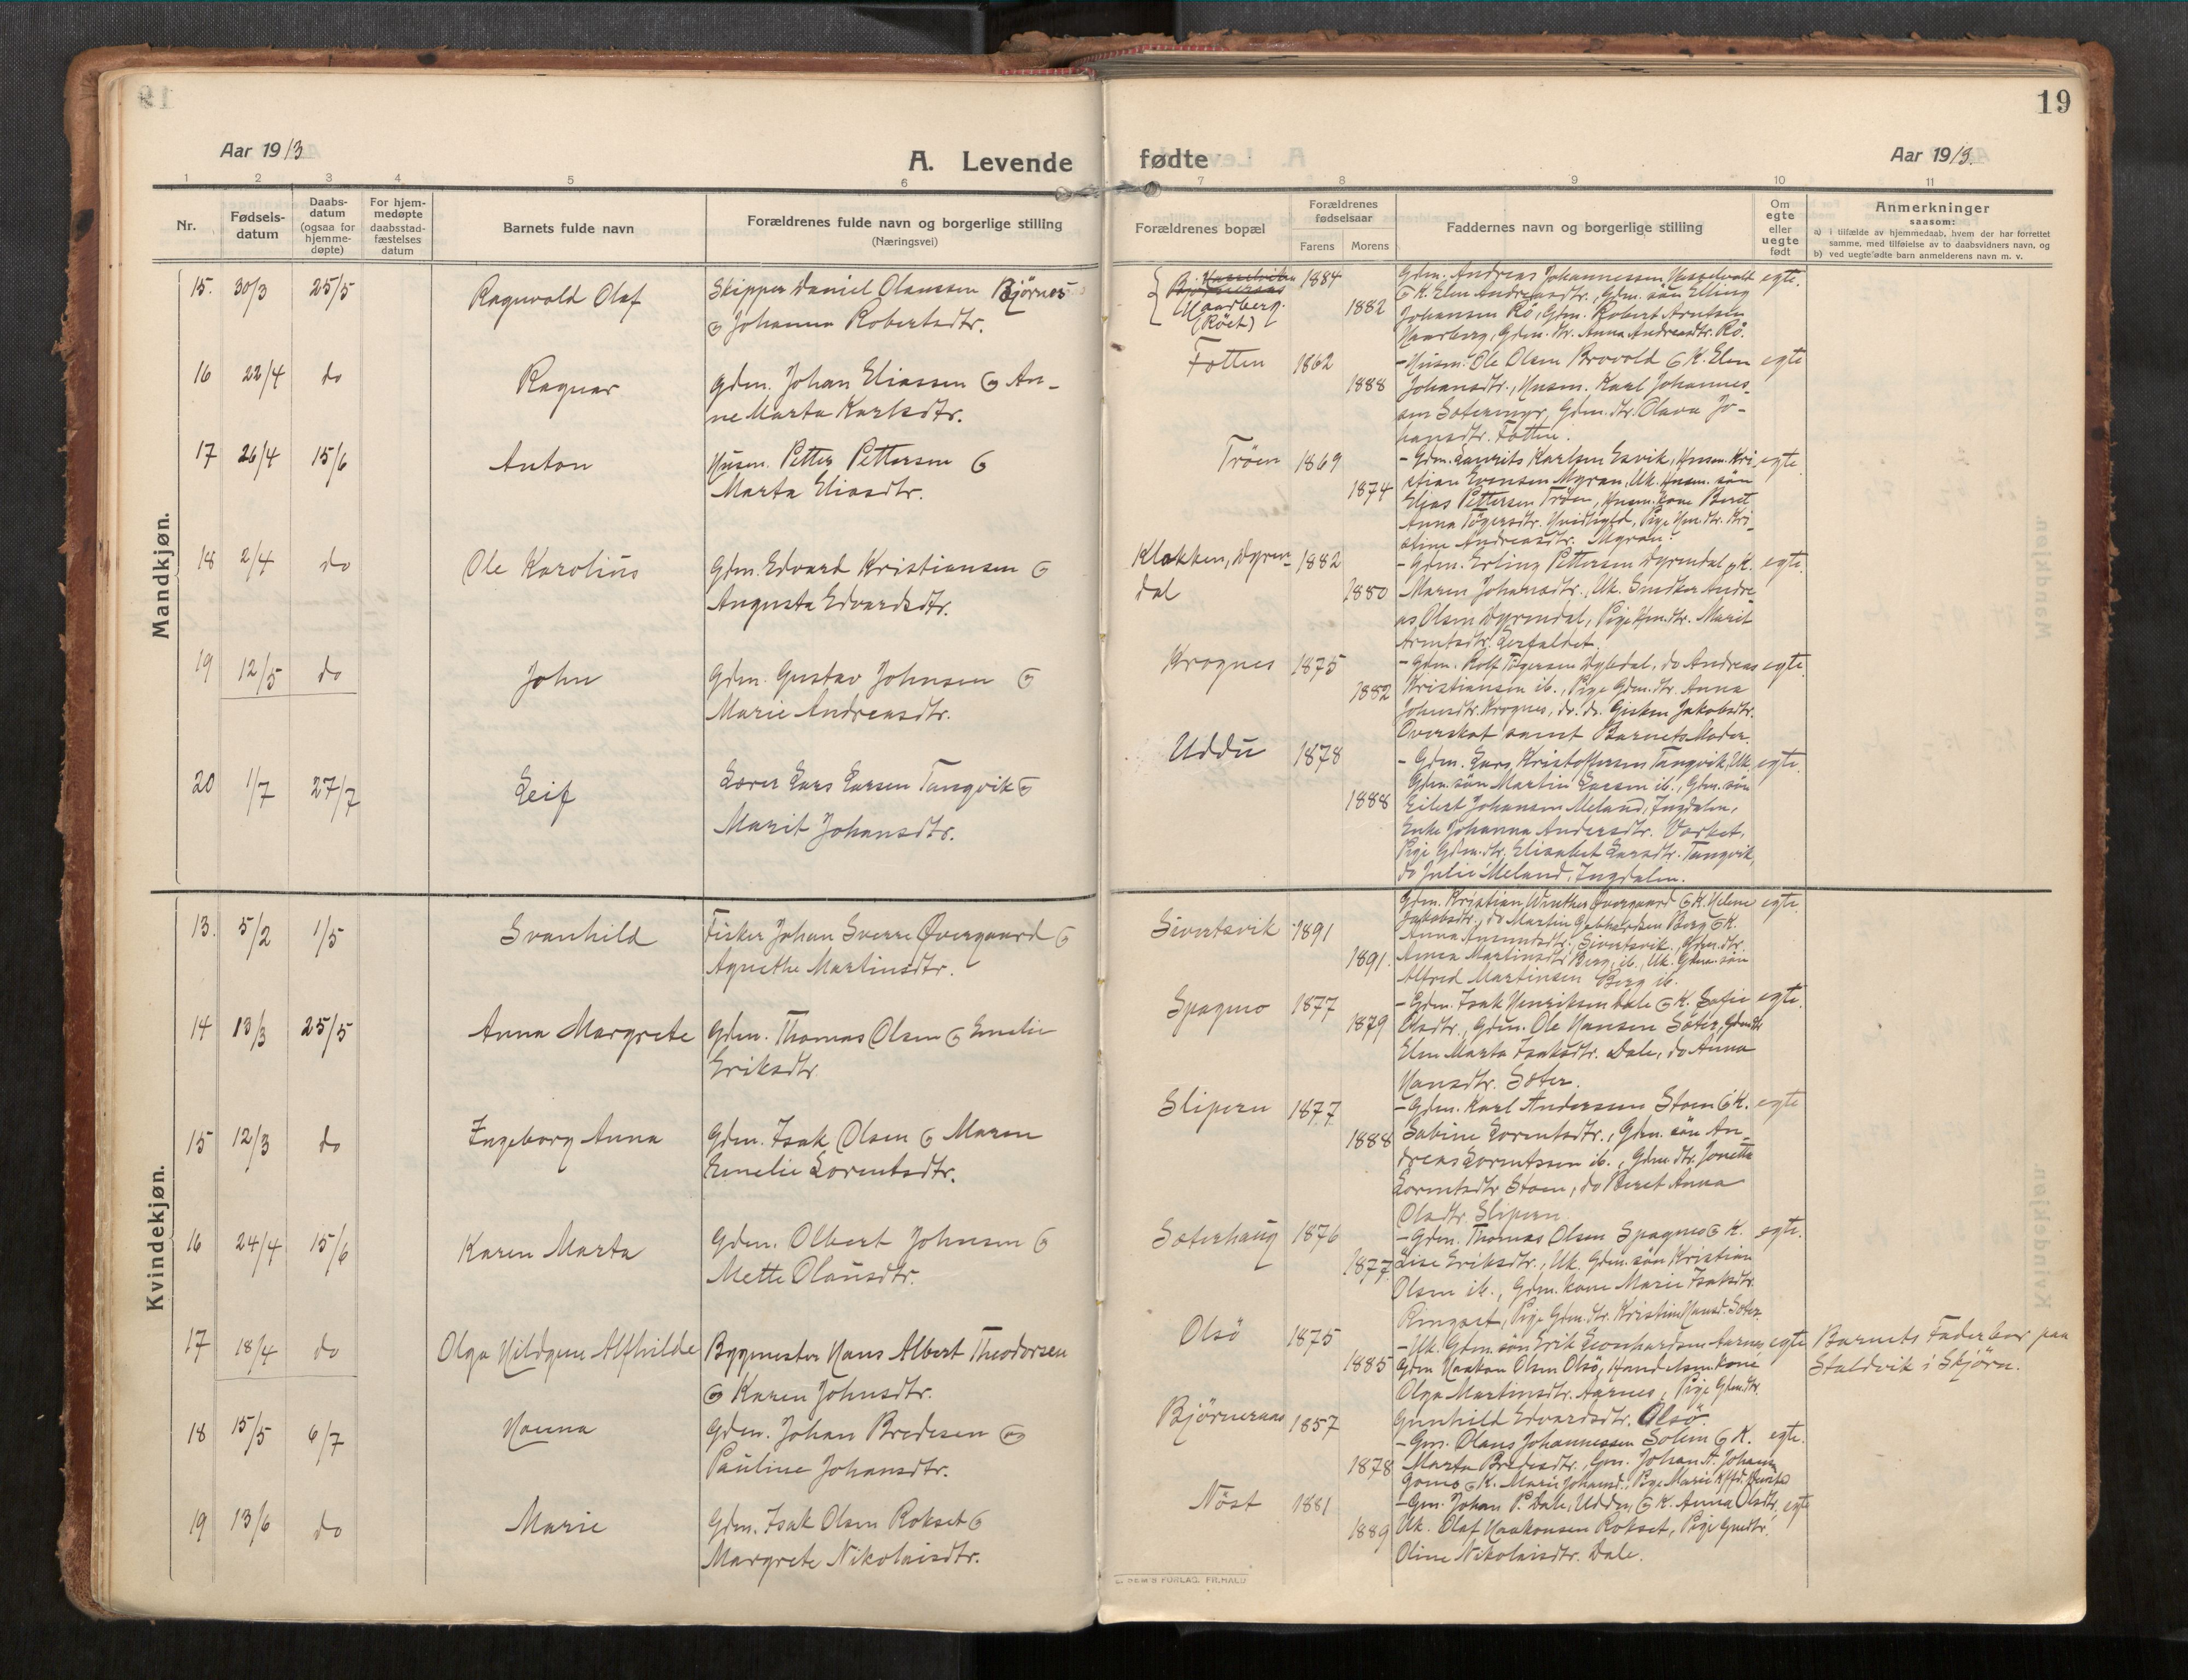 19
Aar 1913
A. Levende
fødte
Aar 1913.
1 2 3 4 5 6 7 8 9 10 11
Nr.
Fødsels-
datum
Daabs-
datum
(ogsaa for
hjemme-
døpte)
For hjem-
medøpte
daabsstad-
fæstelses
datum
Barnets fulde navn
Forældrenes fulde navn og borgerlige stilling
(Næringsvei)
Forældrenes bopæl
Forældrenes
fødselsaar
Farens Morens
Faddernes navn og borgerlige stilling
Om
egte
eller
uegte
født
Anmerkninger
saasom:
a) i tilfælde av hjemmedaab, hvem der har forrettet
samme, med tilføielse av to daabsvidners navn, og
b) ved uegte fødte barn anmelderens navn m. v.
Mandkjøn.
15. 30/3 25/5 Ragnvald Olaf
Skipper Daniel Olaussen Bjørnes
& Johanna Robertsdtr.
Haarberg.
(Röet)
1884
1882
Gdm. Andreas Johannessen Hasselvolt
& K. Elen Andreasdtr., Gdm. sön Elling
Johansen Rö, Gdm. Robert Arntsen
Haarberg, Gdm. dtr. Anna Andreasdtr. Rö.
egte.
16 22/4 do Ragnar
Gdm. Johan Eliassen & An-
ne Marta Karlsdtr.
Fotten
1862
1888
- Husm. Ole Olsen Brovold & K. Elen
Johansdtr., Husm. Karl Johannes-
sen Sætermyr, Gdm. dtr. Olava Jo-
hansdtr. Fotten.
egte
17 26/4 15/6 Anton
Husm. Petter Pettersen &
Marta Eliasdtr.
Tröen
1869
1874
- Gdm. Laurits Karlsen Esvik, Husm. Kri-
stian Evensen Myran, Uk. Husm. sön
Elias Pettersen Tröen, Husm. kone Beret
Anna Tögersdtr., Pige Hm. dtr. Kri-
stine Andreasdtr. Myran.
egte.
18 2/4 do Ole Karolius
Gdm. Edvard Kristiansen &
Augusta Edvardsdtr.
Klakken, Dyren-
dal
1882
1880
- Gdm. Erling Pettersen Dyrendal & K.
Maren Johansdtr., Uk. Snedker Andre-
as Olsen Dyrendal, Pige Hm. dtr. Marit
Arntsdtr. Lerfaldet.
egte.
19 12/5 do John
Gdm. Gustav Johnsen &
Marie Andreasdtr.
Krognes
1875
1882
- Gdm. Rolf Tögersen Dybdal, do Andreas
Kristiansen ib., Pige Gdm. dtr. Anna
Johnsdtr. Krognes, do. do. Gisken Jakobsdtr.
Overskot samt Barnets Moder.
egte.
20 1/7 27/7 Leif
Lærer Lars Larsen Tangvik &
Marit Johansdtr.
Uddu
1878
1888
- Gdm. Lars Kristoffersen Tangvik, Uk.
Gdm. sön Martin Larsen ib., Gdm. sön
Eilert Johansen Meland, Ingdalen,
Enke Johanna Andersdtr. Værket,
Pige Gdm. dtr. Elisabet Larsdtr. Tangvik,
do Julie Meland, Ingdalen.
egte.
Kvindekjøn.
13. 5/2 1/5 Svanhild
Fisker Johan Sverre Øvergaard &
Agnethe Martinsdtr.
Sivertsvik
1891
1891.
Gdm. Kristian Winther Øvergaard & K. Helene
Jakobsdtr., do Martin Gebhardsen Berg & K.
Anna Amundsdtr., Sivertsvik, Gdm. dtr.
Anna Martinsdtr. Berg, ib., Uk. Gdm. sön
Alfred Martinsen Berg ib.
egte.
14 13/3 25/5 Anna Margrete
Gdm. Thomas Olsen & Emelie
Eriksdtr.
Spagmo
1877
1879
- Gdm. Isak Henriksen Dale & K. Sofie
Olsdtr., Gdm. Ole Hansen Sæter, Gdm. dtr.
Elen Marta Isaksdtr. Dale, do Anna
Hansdtr. Sæter.
egte.
15 12/3 do Ingeborg Anna
Gdm. Isak Olsen & Maren
Emelie Lorentsdtr.
Slipern
1877
1888
- Gdm. Karl Andersen Stoen & K.
Sabine Lorentsdtr., Gdm. sön An-
dreas Lorentssen ib., Gdm. dtr. Jonetta
Lorentsdtr. Stoen, do Beret Anna
Olsdtr. Slipern.
egte
16 24/4 15/6 Karen Marta
Gdm. Olbert Johnsen &
Mette Olausdtr.
Sæterhaug
1876
1877.
- Gdm. Thomas Olsen Spagmo & K.
Lise Eriksdtr., Uk. Gdm. sön Kristian
Olsen ib., Gdm. kone Marie Isaksdtr.
Ringset, Pige Gdm. dtr. Kristine Hansd. Sæter.
egte.
17 18/4 do Olga Hildgunn Alfhilde
Bygmester Hans Albert Theodorsen
& Karen Johnsdtr.
Olsö
1875
1885
- Uk. Gdm. sön Erik Leonhardsen Aarnes
Gdm. Haakon Olsen Olsö, Handelsm. kone
Olga Martinsdtr. Aarnes, Pige Gdm. dtr.
Gunhild Edvardsdtr. Olsö.
egte
Barnets Fader bor paa
Staldvik i Stjörn.
18 15/5 6/7 Hanna
Gdm. Johan Bredesen &
Pauline Johansdtr.
Björneraas
1857
1878
- Gm. Olaus Johannessen Solem & K.
Marta Bredesdtr., Gm. Johan A. Johan
& K. Marie Johansd., Pige Marie
egte.
19 13/6 do Marie
Gdm. Isak Olsen Rokset &
Margrete Nikolaisdtr.
Nöst
1881
1889
- Gm. Johan P. Dale, Uddu, & K. Anna Olsdtr.
Uk. Olaf Haakonsen Rokset, Pige Gmdtr.
Oline Nikolaisdtr. Dale.
egte
FORLAG. FR.HALD